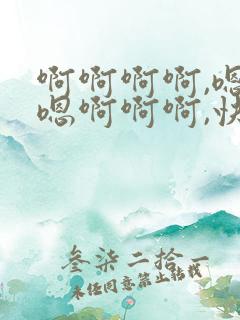 啊啊啊啊,嗯
嗯啊啊啊,快
叁柒二拾一
未经同意禁止转载